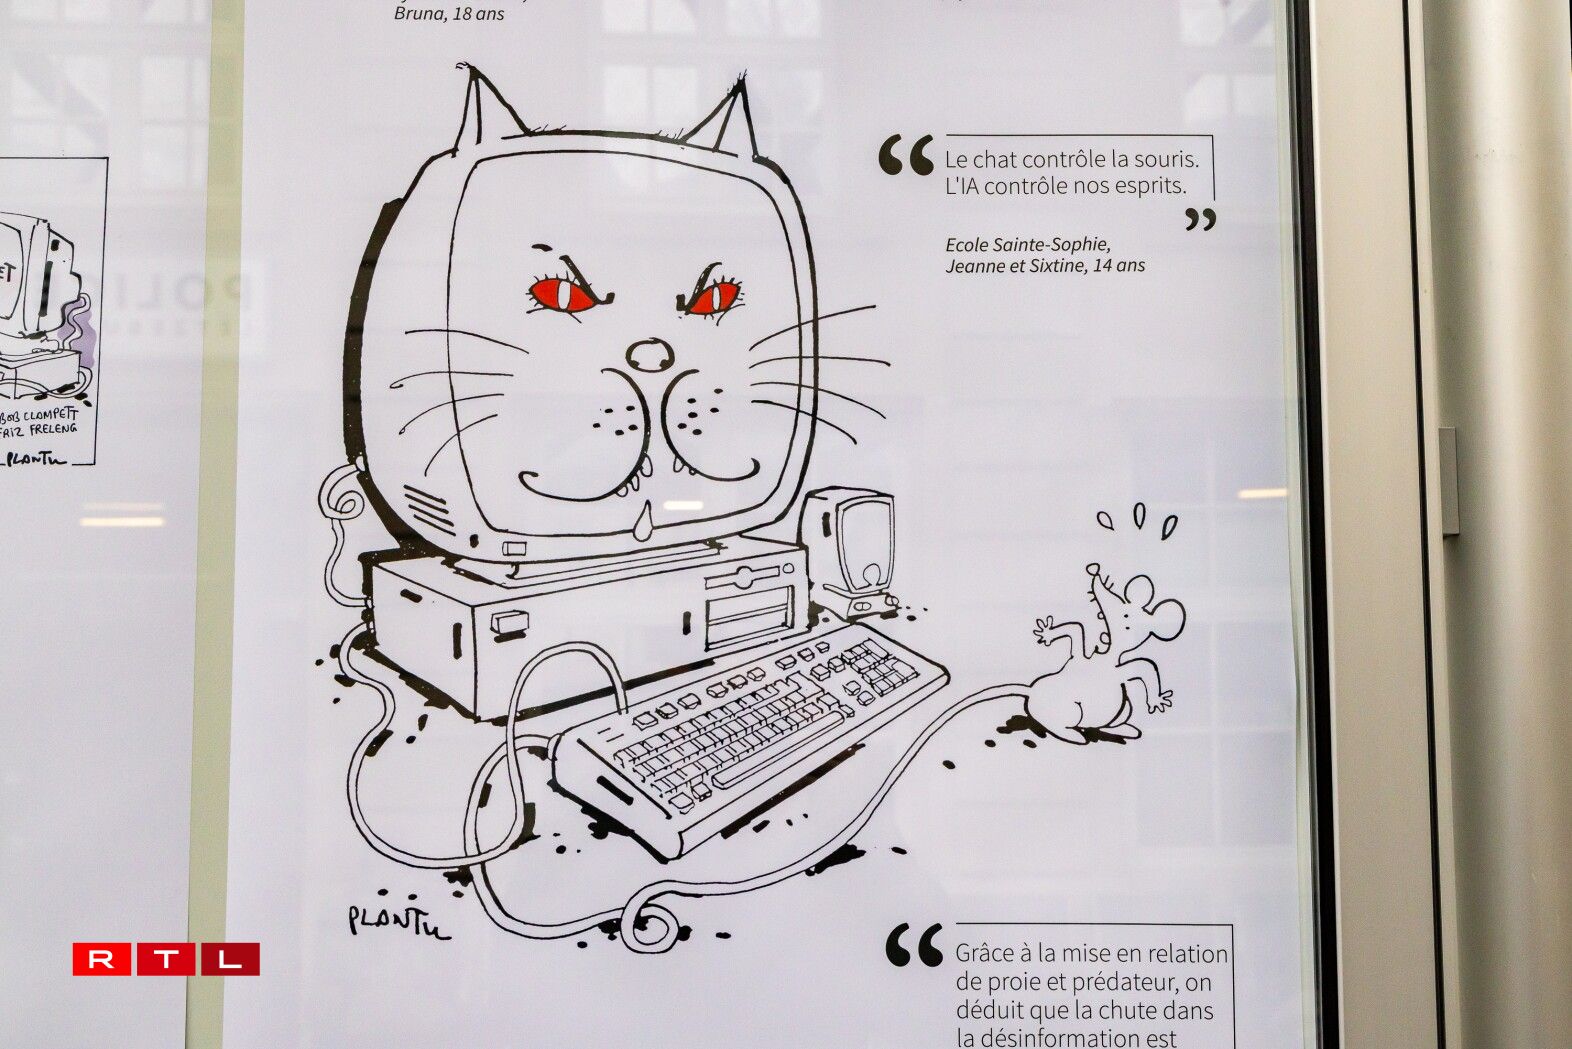 Bruna, 18 ans
“ Le chat contrôle la souris.
L'IA contrôle nos esprits. ”
Ecole Sainte-Sophie,
Jeanne et Sixtine, 14 ans
BOB CLAMPETT
FRIZ FRELENG
PLANTU
PLANTU
“ Grâce à la mise en relation
de proie et prédateur, on
déduit que la chute dans
la désinformation est
RTL